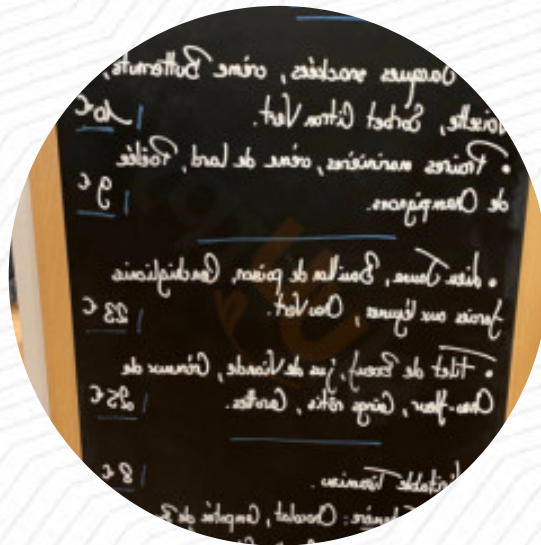 Jacques snackées, crème Butternuts,
Noisette, Sorbet Citron Vert. | 10€
• Huîtres marinières, crème de lard, Poêlée
de Champignons. | 9€
• Lieu Jaune, Bouillon de poisson, Conchiglionis
farcies aux légumes, Chou Vert. | 23€
• Filet de Boeuf, jus de Viande, Crémeux de
Chou-fleur, Coings rôtis, Carottes. | 25€
Véritable Tiramisu. | 8€
: Chocolat, Compotée de